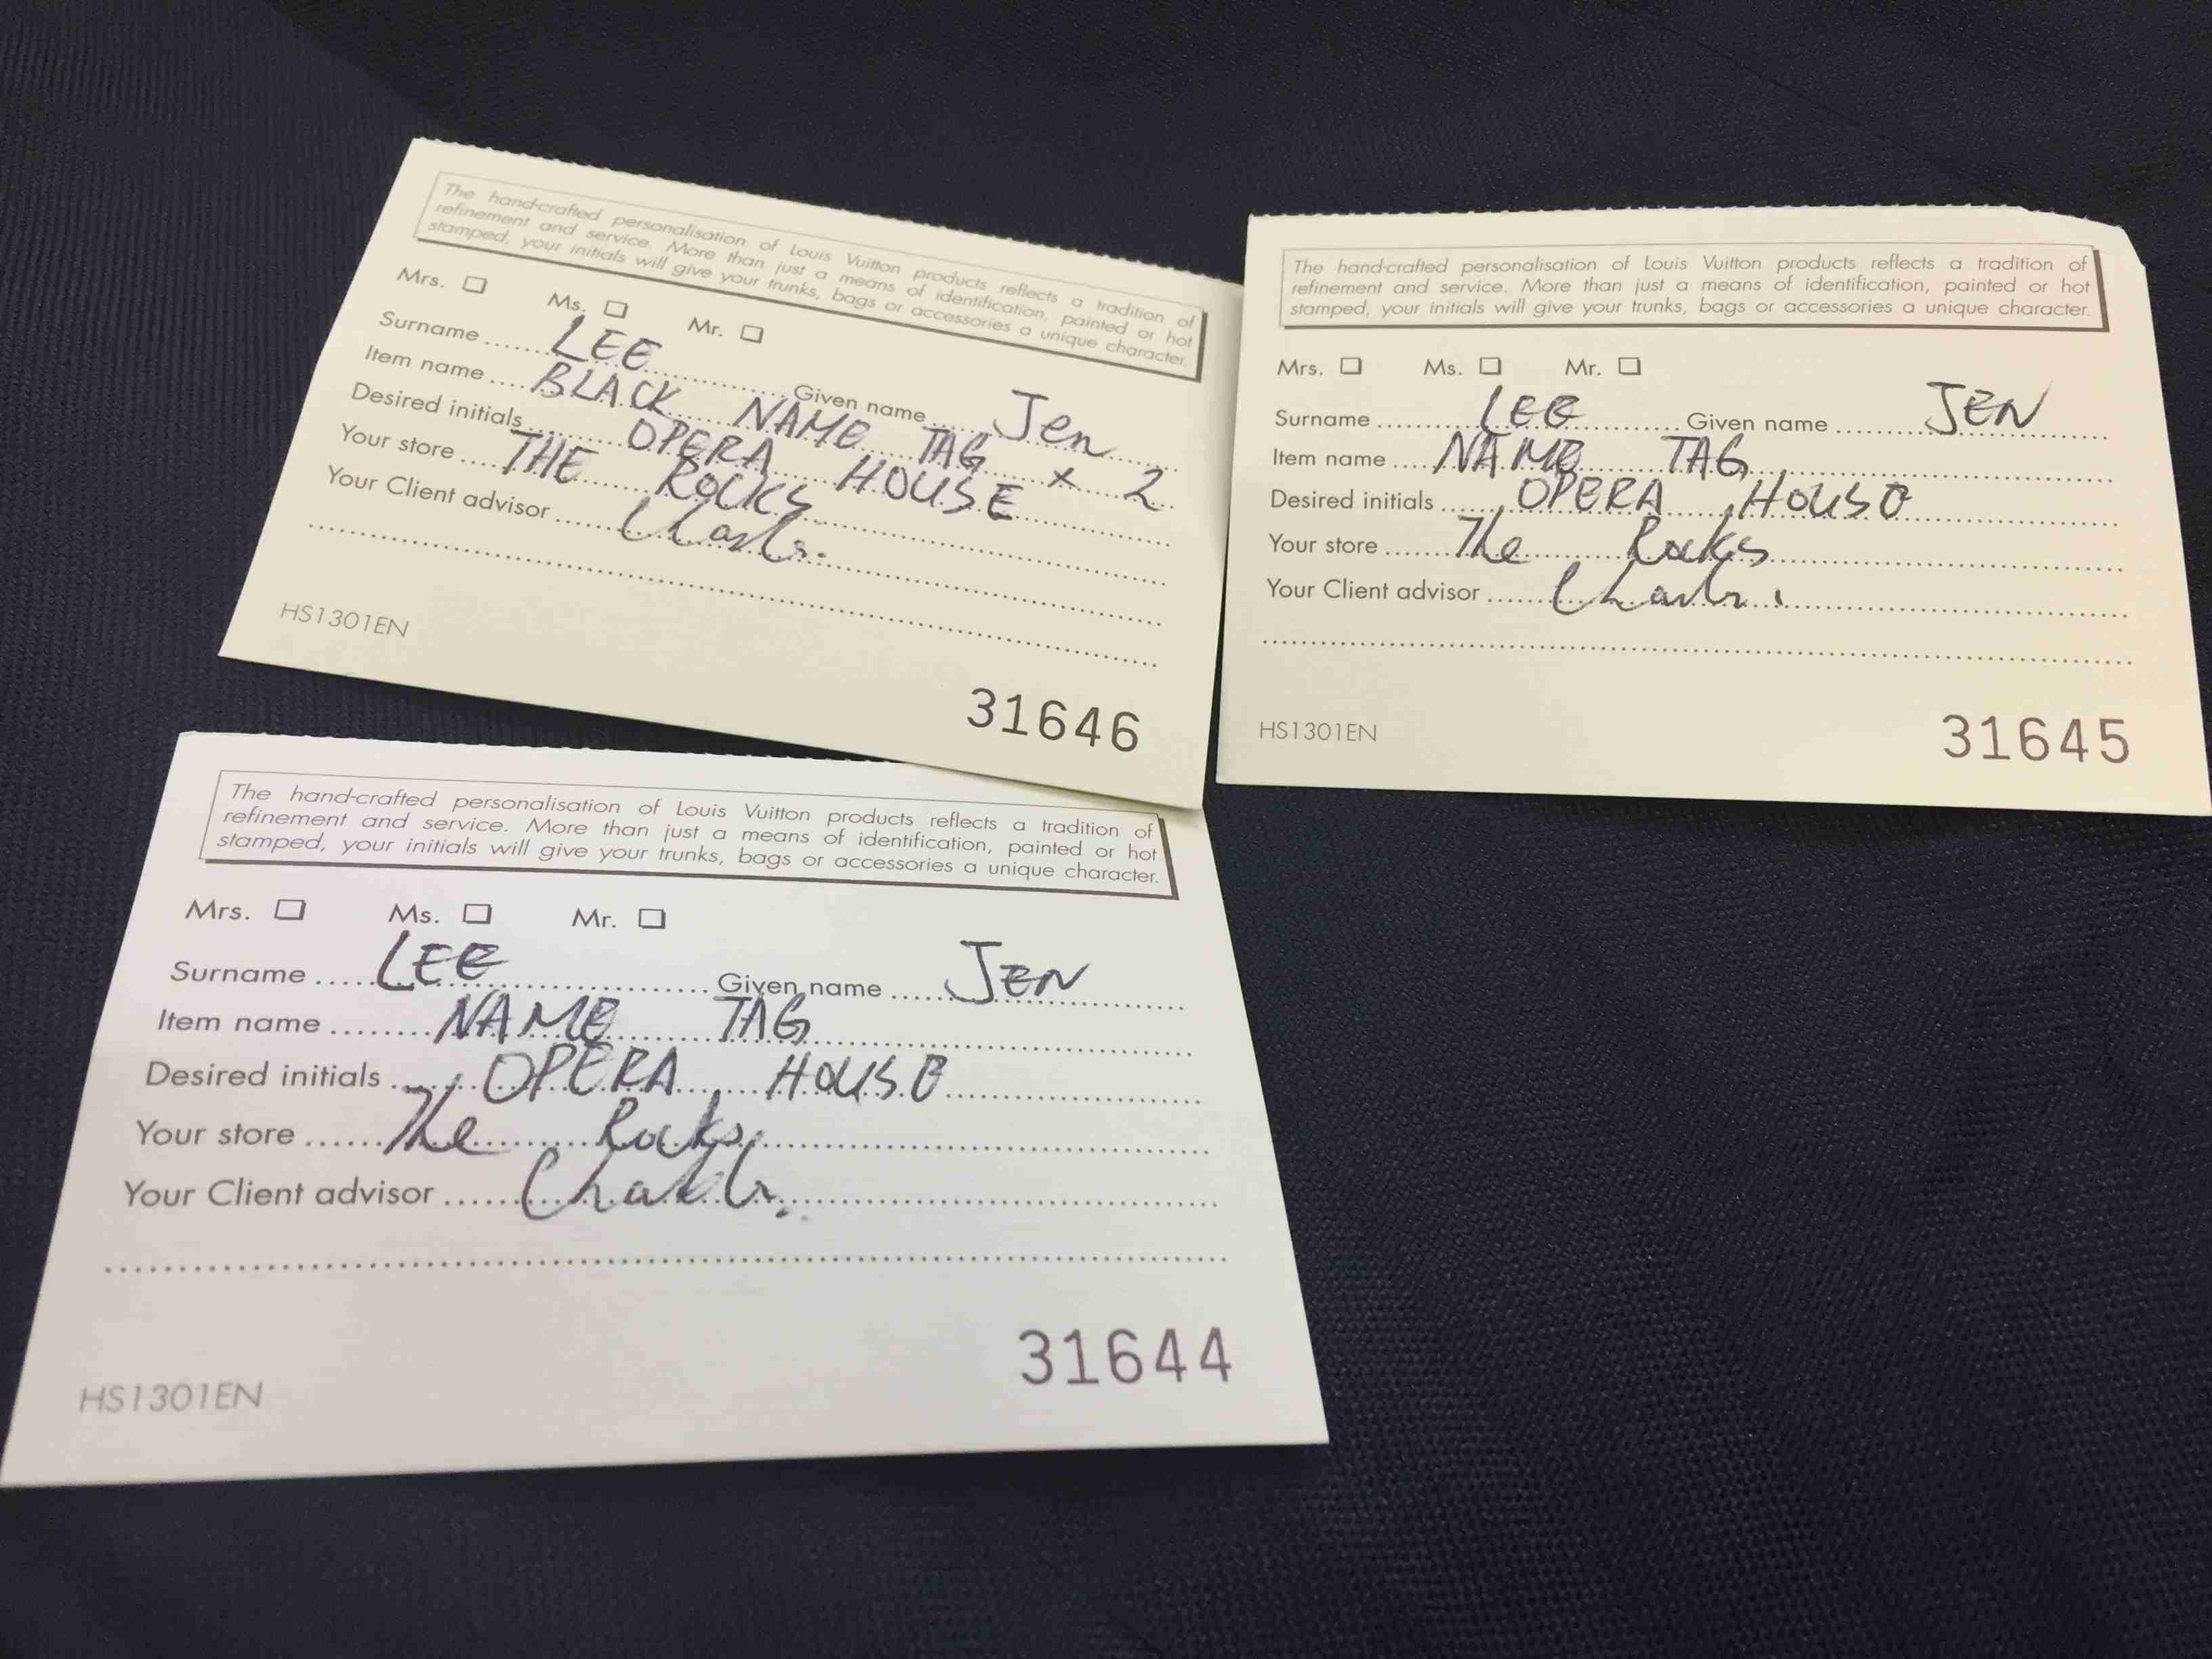 The hand-crafted personalisation of Louis Vuitton products reflects a tradition of
refinement and service. More than just a means of identification, painted or hot
stamped, your initials will give your trunks, bags or accessories a unique character.
Mrs. Ms. Mr.
Surname LEE Given name Jen
Item name BLACK NAME TAG x 2
Desired initials OPERA HOUSE
Your store THE ROCKS
Your Client advisor
HS1301EN
31646
The hand-crafted personalisation of Louis Vuitton products reflects a tradition of
refinement and service. More than just a means of identification, painted or hot
stamped, your initials will give your trunks, bags or accessories a unique character.
Mrs. Ms. Mr.
Surname LEE Given name JEN
Item name NAME TAG
Desired initials OPERA HOUSE
Your store The Rocks
Your Client advisor
HS1301EN
31645
The hand-crafted personalisation of Louis Vuitton products reflects a tradition of
refinement and service. More than just a means of identification, painted or hot
stamped, your initials will give your trunks, bags or accessories a unique character.
Mrs. Ms. Mr.
Surname LEE Given name JEN
Item name NAME TAG
Desired initials OPERA HOUSE
Your store The Rocks
Your Client advisor
HS1301EN
31644